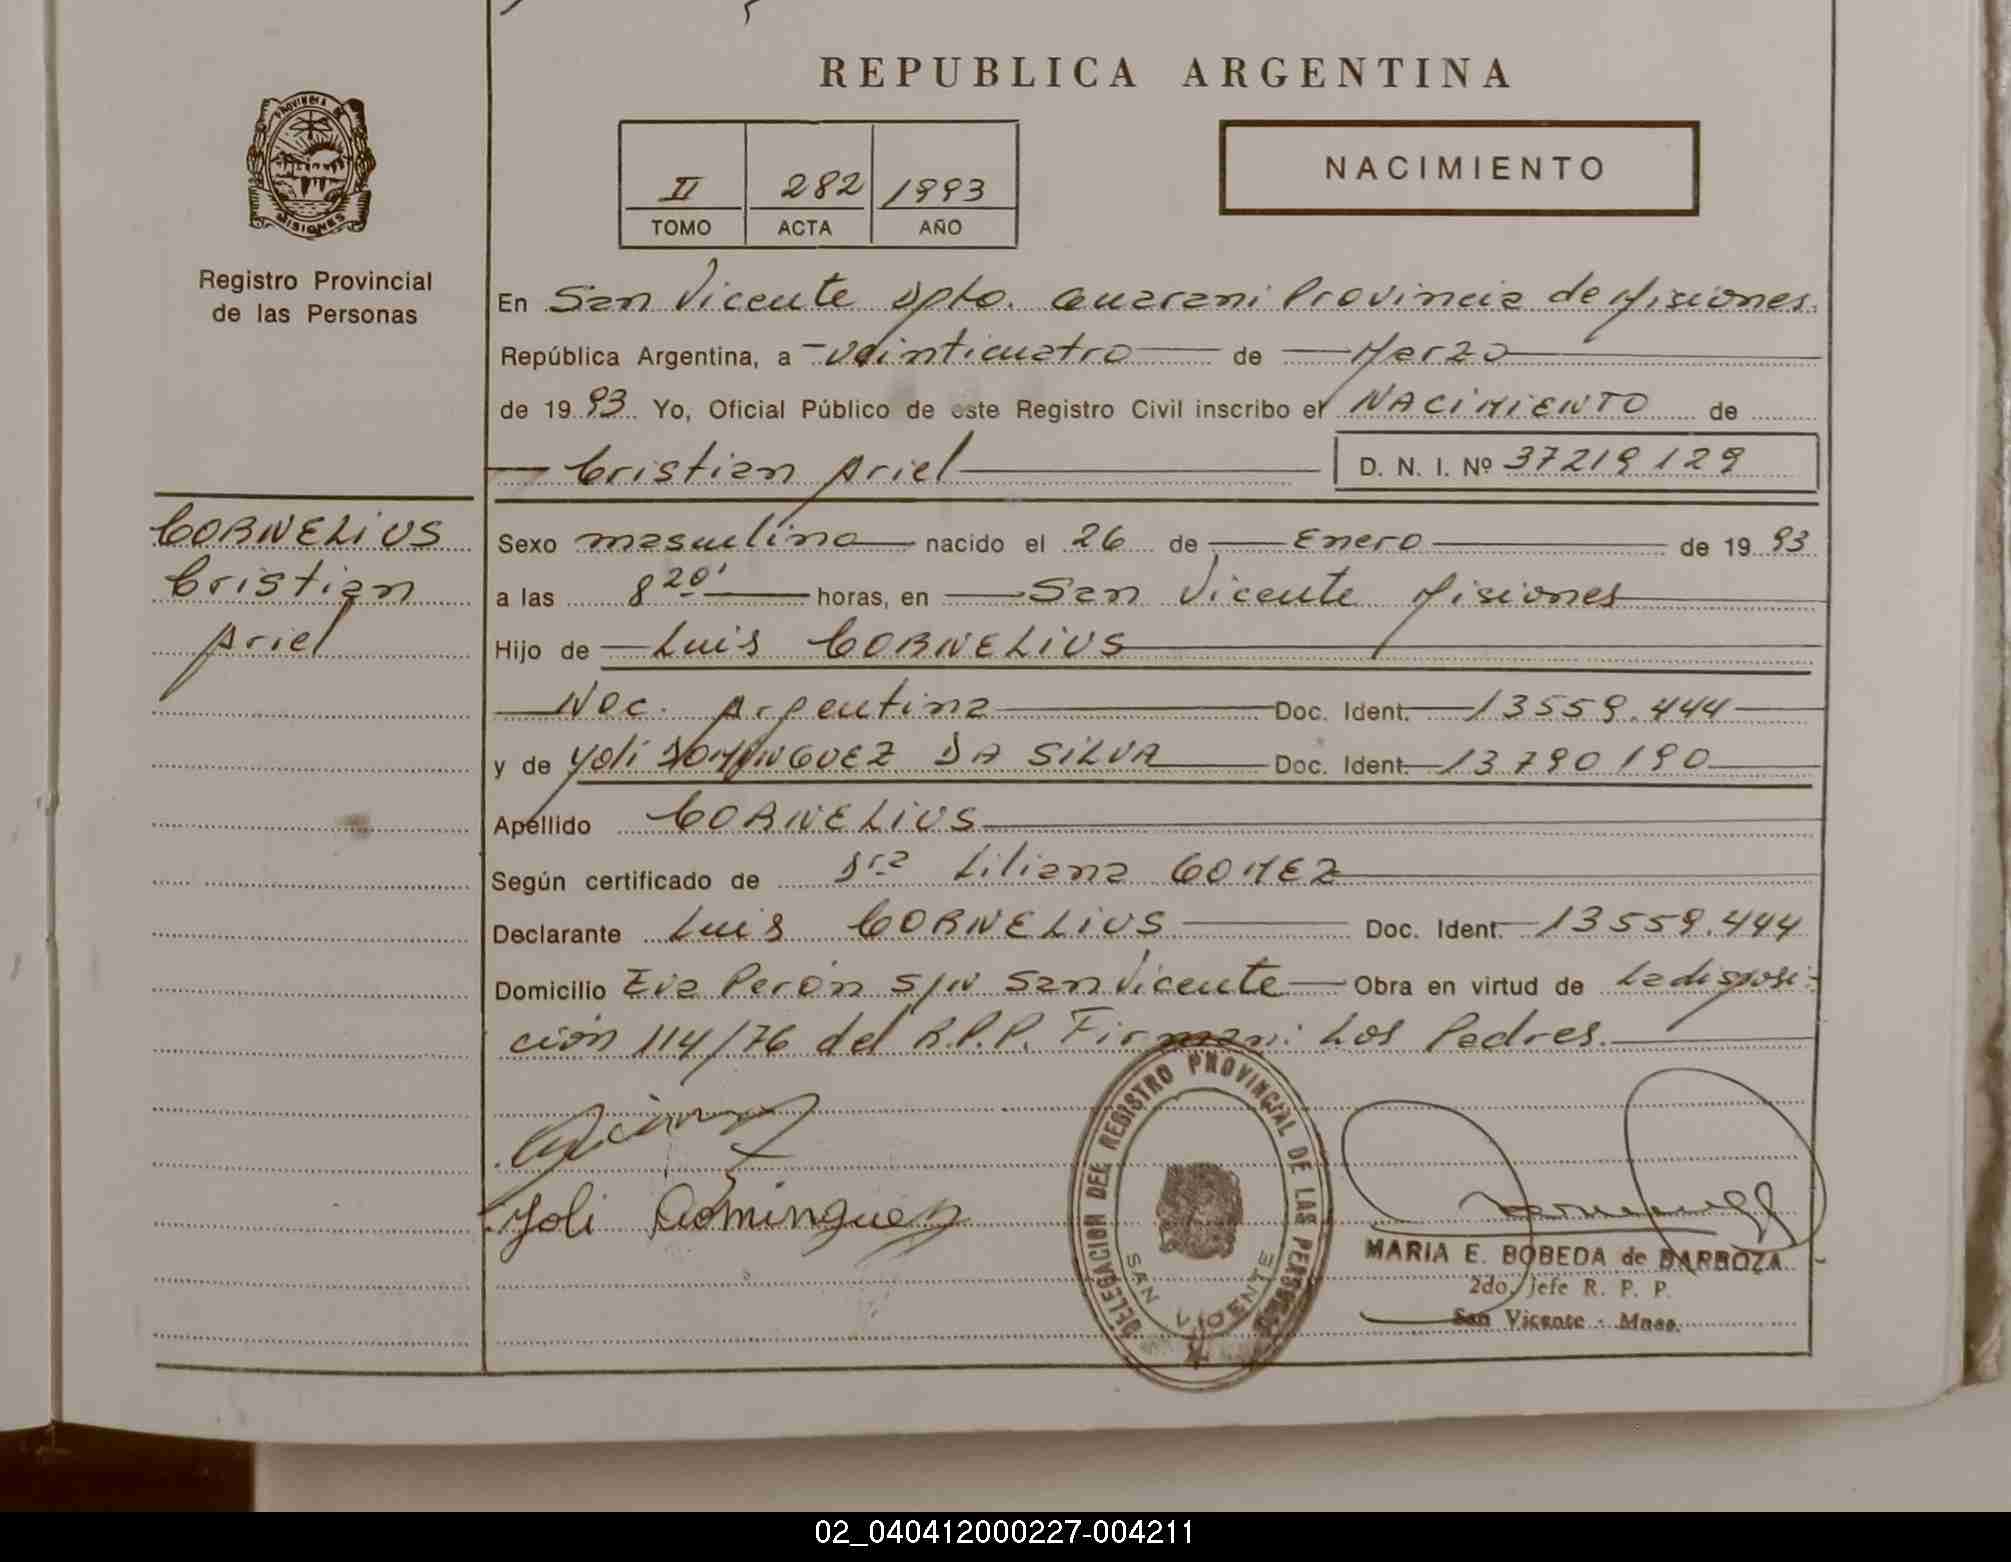 REPUBLICA ARGENTINA
PROVINCIA DE
MISIONES
Registro Provincial
de las Personas
II 282 1993
TOMO ACTA AÑO
NACIMIENTO
En San Vicente Dpto. Guarani Provincia de Misiones.
República Argentina, a veinticuatro de Marzo
de 1993 Yo, Oficial Público de este Registro Civil inscribo el NACIMIENTO de
Cristian Ariel D. N. I. Nº 37219129
CORNELIUS
Cristian
Ariel
Sexo masculino nacido el 26 de Enero de 1993
a las 8 20' horas, en San Vicente Misiones
Hijo de Luis CORNELIUS
Nac. Argentina Doc. Ident. 13559.444
y de Yoli DOMINGUEZ DA SILVA Doc. Ident. 13790190
Apellido CORNELIUS
Según certificado de Dra Liliana GOMEZ
Declarante Luis CORNELIUS Doc. Ident. 13559.444
Domicilio Eva Perón S/N San Vicente Obra en virtud de La disposi-
ción 114/76 del R.P.P. Firman: Los Padres.
Yoli Dominguez
DELEGACION DEL REGISTRO PROVINCIAL DE LAS PERSONAS
SAN VICENTE
MARIA E. BOBEDA de BARBOZA
2do. Jefe R. P. P.
San Vicente - Mnes.
02_040412000227-004211